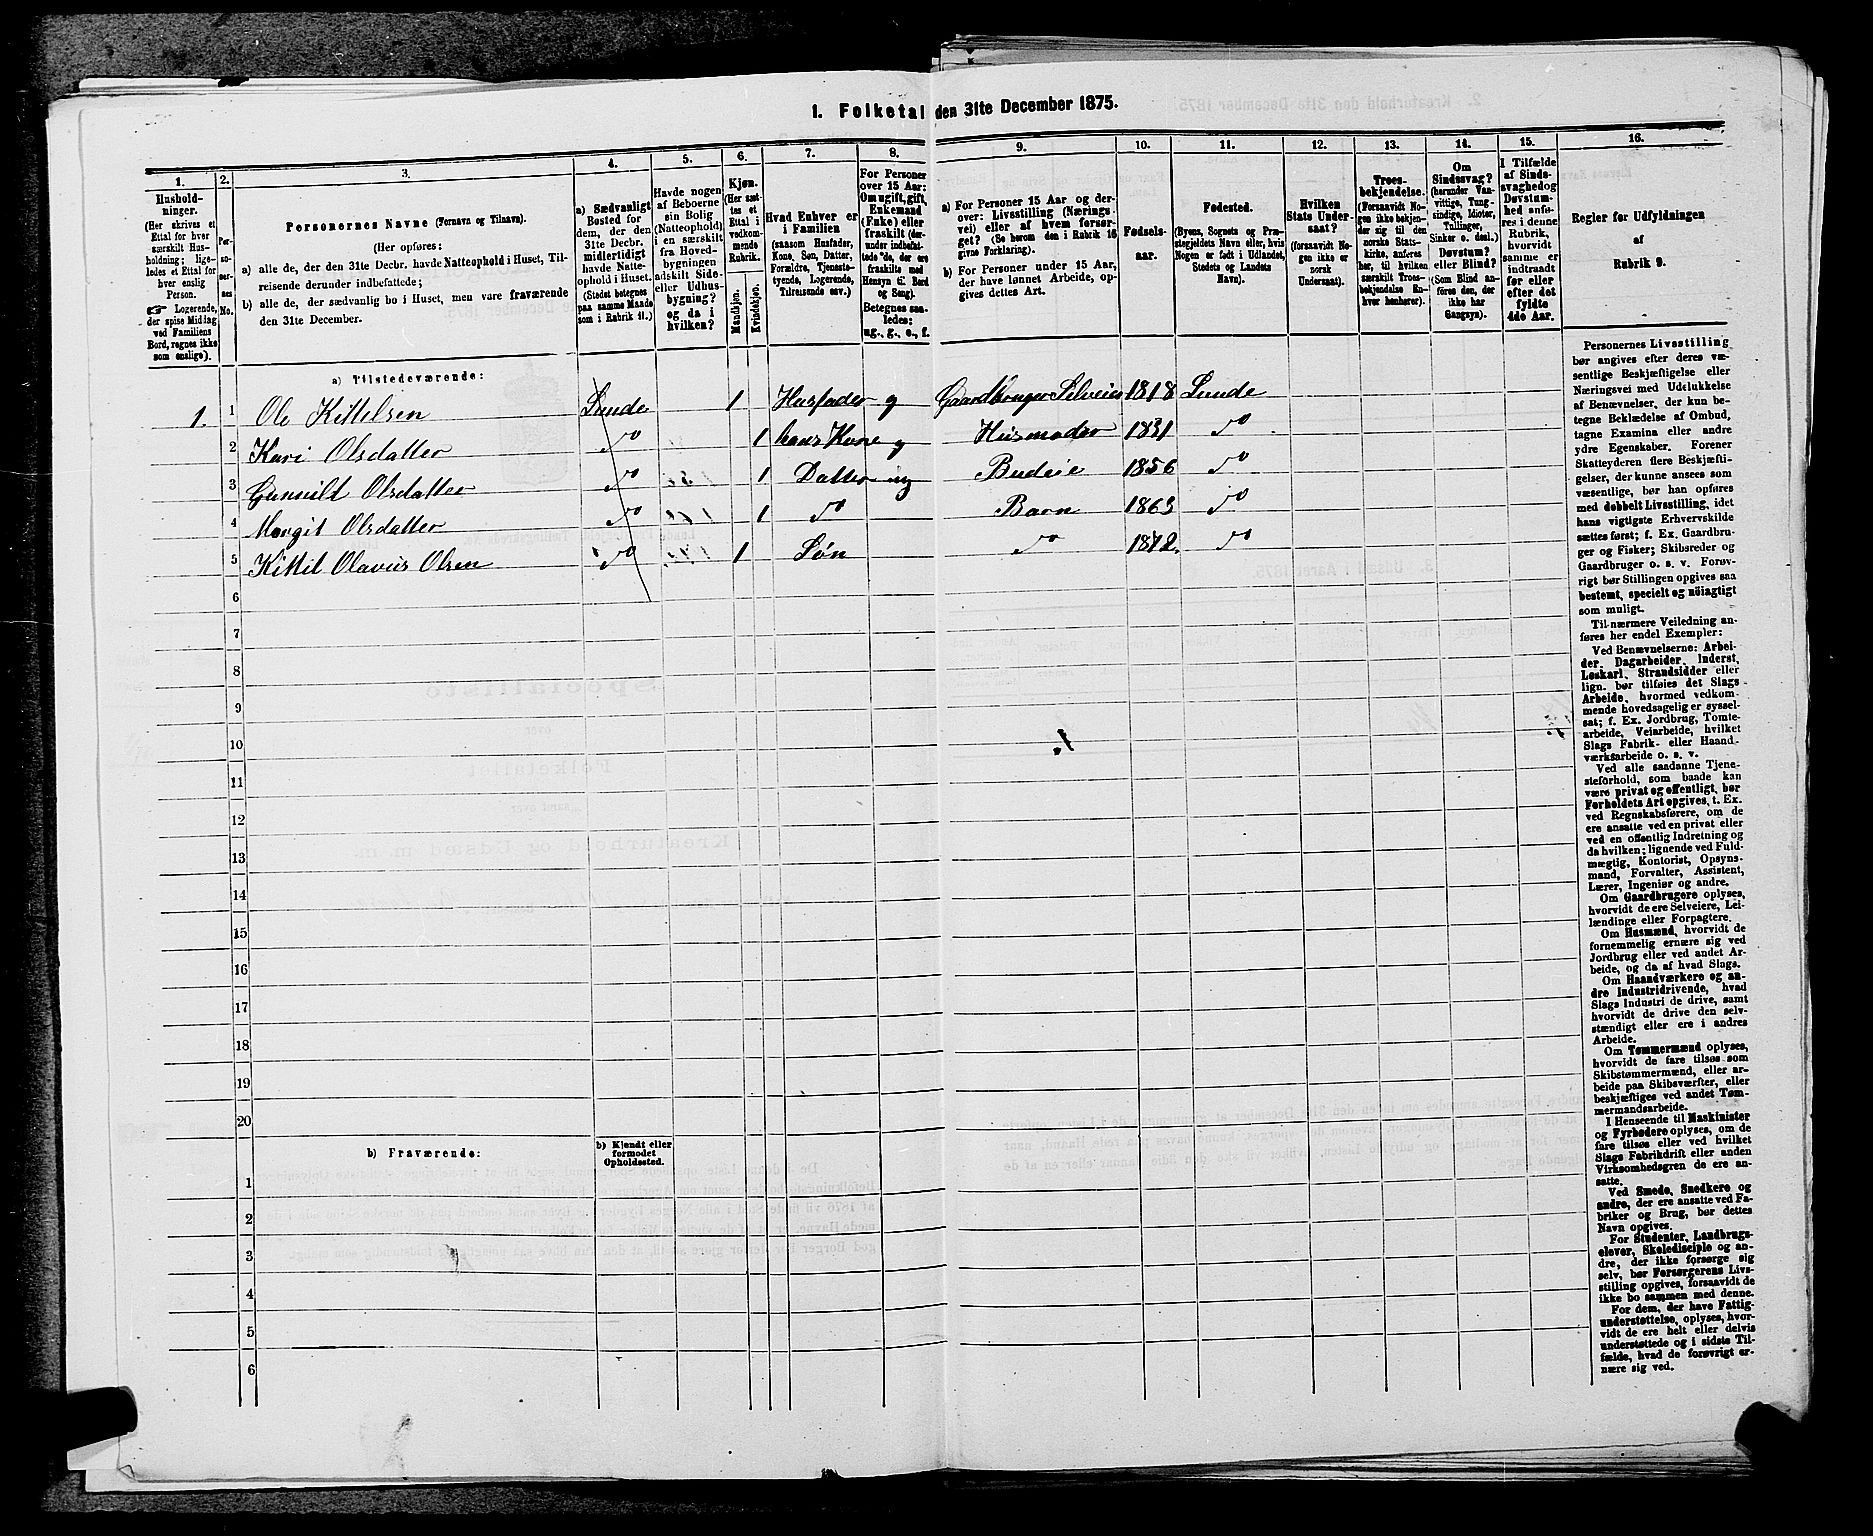 1. Folketal den 31te December 1875.
1.
2.
3.
4.
5.
6.
7.
8.
9.
10.
11.
12.
13.
14.
15.
16.
Husholdninger.
(Her skrives et
Ettal for hver
særskilt Husholdning;
ligeledes et Ettal for
hver enslig
Person.
☞ Logerende,
der spise Middag
ved Familiens
Bord, regnes ikke
som enslige).
Personernes No.
Personernes Navne (Fornavn og Tilnavn).
(Her opføres:
a) alle de, der den 31te Decbr. havde Natteophold i Huset, Tilreisende derunder indbefattede;
b) alle de, der sædvanlig bo i Huset, men vare fraværende
den 31te December.
a) Sædvanligt
Bosted for
dem, der den
31te Decbr.
midlertidigt
havde Natteophold i Huset.
(Stedet betegnes
paa samme Maade
som i Rubrik 11.)
Havde nogen
af Beboerne
sin Bolig
(Natteophold)
i en særskilt
fra Hovedbygningen
adskilt Side-
eller Udhusbygning?
og da i
hvilken?
Kjøn.
(Her sættes et
Ettal i
vedkommende
Rubrik.
Mandkjøn.
Kvindekjøn.
Hvad Enhver er
i Familien
(saasom Husfader,
Kone, Søn, Datter,
Forældre, Tjenestetyende, Logerende,
Tilreisende osv.)
For Personer
over 15 Aar:
Om ugift, gift,
Enkemand
(Enke) eller
fraskilt (derunder indbefattede de, der ere
fraskilte med
Hensyn til Bord
og Seng).
Betegnes saaledes:
ug., g., e., f.
a) For Personer 15 Aar og derover: Livsstilling (Næringsvei) eller af hvem forsørget? (Se herom den i Rubrik 16
givne Forklaring).
b) For Personer under 15 Aar,
der have lønnet Arbeide, opgives dettes Art.
Fødselsaar.
Fødested.
(Byens, Sognets og Præstegjeldets Navn eller, hvis
Nogen er født i Udlandet,
Stedets og Landets
Navn).
Hvilken
Stats Undersaat?
(forsaavidt Nogen ikke er
norsk
Undersaat).
Troesbekjendelse.
(Forsaavidt Nogen ikke bekjender sig til den
norske Statskirke, anføres
her, til hvilken
særskilt Troesbekjendelse Enhver henhører).
Om
Sindssvag?
(herunder Vanvittige, Tungsindige, Idioter,
Tullinger,
Sinker o. desl.)
Døvstum?
eller Blind?
(Som Blind anføres den, der
ikke har
Gangsyn).
I Tilfælde
af Sindssvaghed og
Døvstumhed anføres i denne
Rubrik,
hvorvidt
samme er
indtraadt
før eller
efter det
fyldte
4de Aar.
Regler for Udfyldningen
af
Rubrik 9.
a) Tilstedeværende:
1. 1 Ole Kittelsen Lunde 1 Husfader g Gaardbruger Selveier 1818 Lunde
2 Kari Olsdatter do 1 hans Kone g Husmoder 1831 do
3 Gunnild Olsdatter do 1 Datter ug Budeie 1856 do
4 Margit Olsdatter do 1 do Barn 1863 do
5 Kittil Olavus Olsen do 1 Søn do 1872. do
6
7
8
9
10
11
12
13
14
15
16
17
18
19
20
b) Fraværende:
b) Kjendt eller
formodet
Opholdssted.
1
2
3
4
5
6
Personernes Livsstilling
bør angives efter deres væsentlige Beskjæftigelse eller
Næringsvei med Udelukkelse
af Benævnelser, der kun betegne Beklædelse af Ombud,
tagne Examina eller andre
ydre Egenskaber. Forener
Skatteyderen flere Beskjæftigelser, der kunne ansees som
væsentlige, bør han opføres
med dobbelt Livsstilling, idet
hans vigtigste Erhvervskilde
sættes først; f. Ex. Gaardbruger og Fisker; Skibsreder og
Gaardbruger o. s. v. Forøvrigt bør Stillingen opgives saa
bestemt, specielt og nöiagtigt
som muligt.
Til nærmere Veiledning anføres her endel Exempler:
Ved Benævnelserne: Arbeider, Dagarbeider, Inderst,
Løskarl, Strandsidder eller
lign. bør tilføies det Slags
Arbeide, hvormed vedkommende hovedsagelig er sysselsat; f. Ex. Jordbrug, Tomtearbeide, Veiarbeide, hvilket
Slags Fabrik- eller Haandværksarbeide o. s. v.
Ved alle saadanne Tjenesteforhold, som baade kan
være privat og offentligt, bør
Forholdets Art opgives, t. Ex.
ved Regnskabsførere, om de
ere ansatte ved en privat eller
ved en offentlig Indretning og
da hvilken; lignende ved Fuldmægtig, Kontorist, Opsynsmand, Forvalter, Assistent,
Lærer, Ingeniør og andre.
Om Gaardbrugere oplyses,
hvorvidt de ere Selveiere, Leilændinge eller Forpagtere.
Om Husmænd, hvorvidt de
fornemmelig ernære sig ved
Jordbrug eller ved andet Arbeide, og da af hvad Slags.
Om Haandværkere og andre Industridrivende, hvad
Slags Industri de drive, samt
hvorvidt de drive den selvstændigt eller ere i andres
Arbeide.
Om Tømmermænd oplyses,
hvorvidt de fare tilsøs som
Skibstømmermænd, eller arbeide paa Skibsværfter, eller
beskjæftiges ved andet Tømmermandsarbeide.
I Henseende til Maskinister
og Fyrbødere oplyses, om de
fare tilsøs eller ved hvilket
Slags Fabrikdrift eller anden
Virksomhedsgren de ere ansatte.
Ved Smede, Snedkere og
andre, der ere ansatte ved Fabriker og Brug, bør dettes
Navn opgives.
For Studenter, Landbrugselever, Skoledisciple og andre, der ikke forsørge sig
selv, bør Forsørgerens Livsstilling opgives, forsaavidt de
ikke bo sammen med denne.
For dem, der have Fattigunderstøttelse, oplyses, hvorvidt de ere helt eller delvis
understøttede og i sidste Tilfælde, hvad de forøvrigt ernære sig ved.